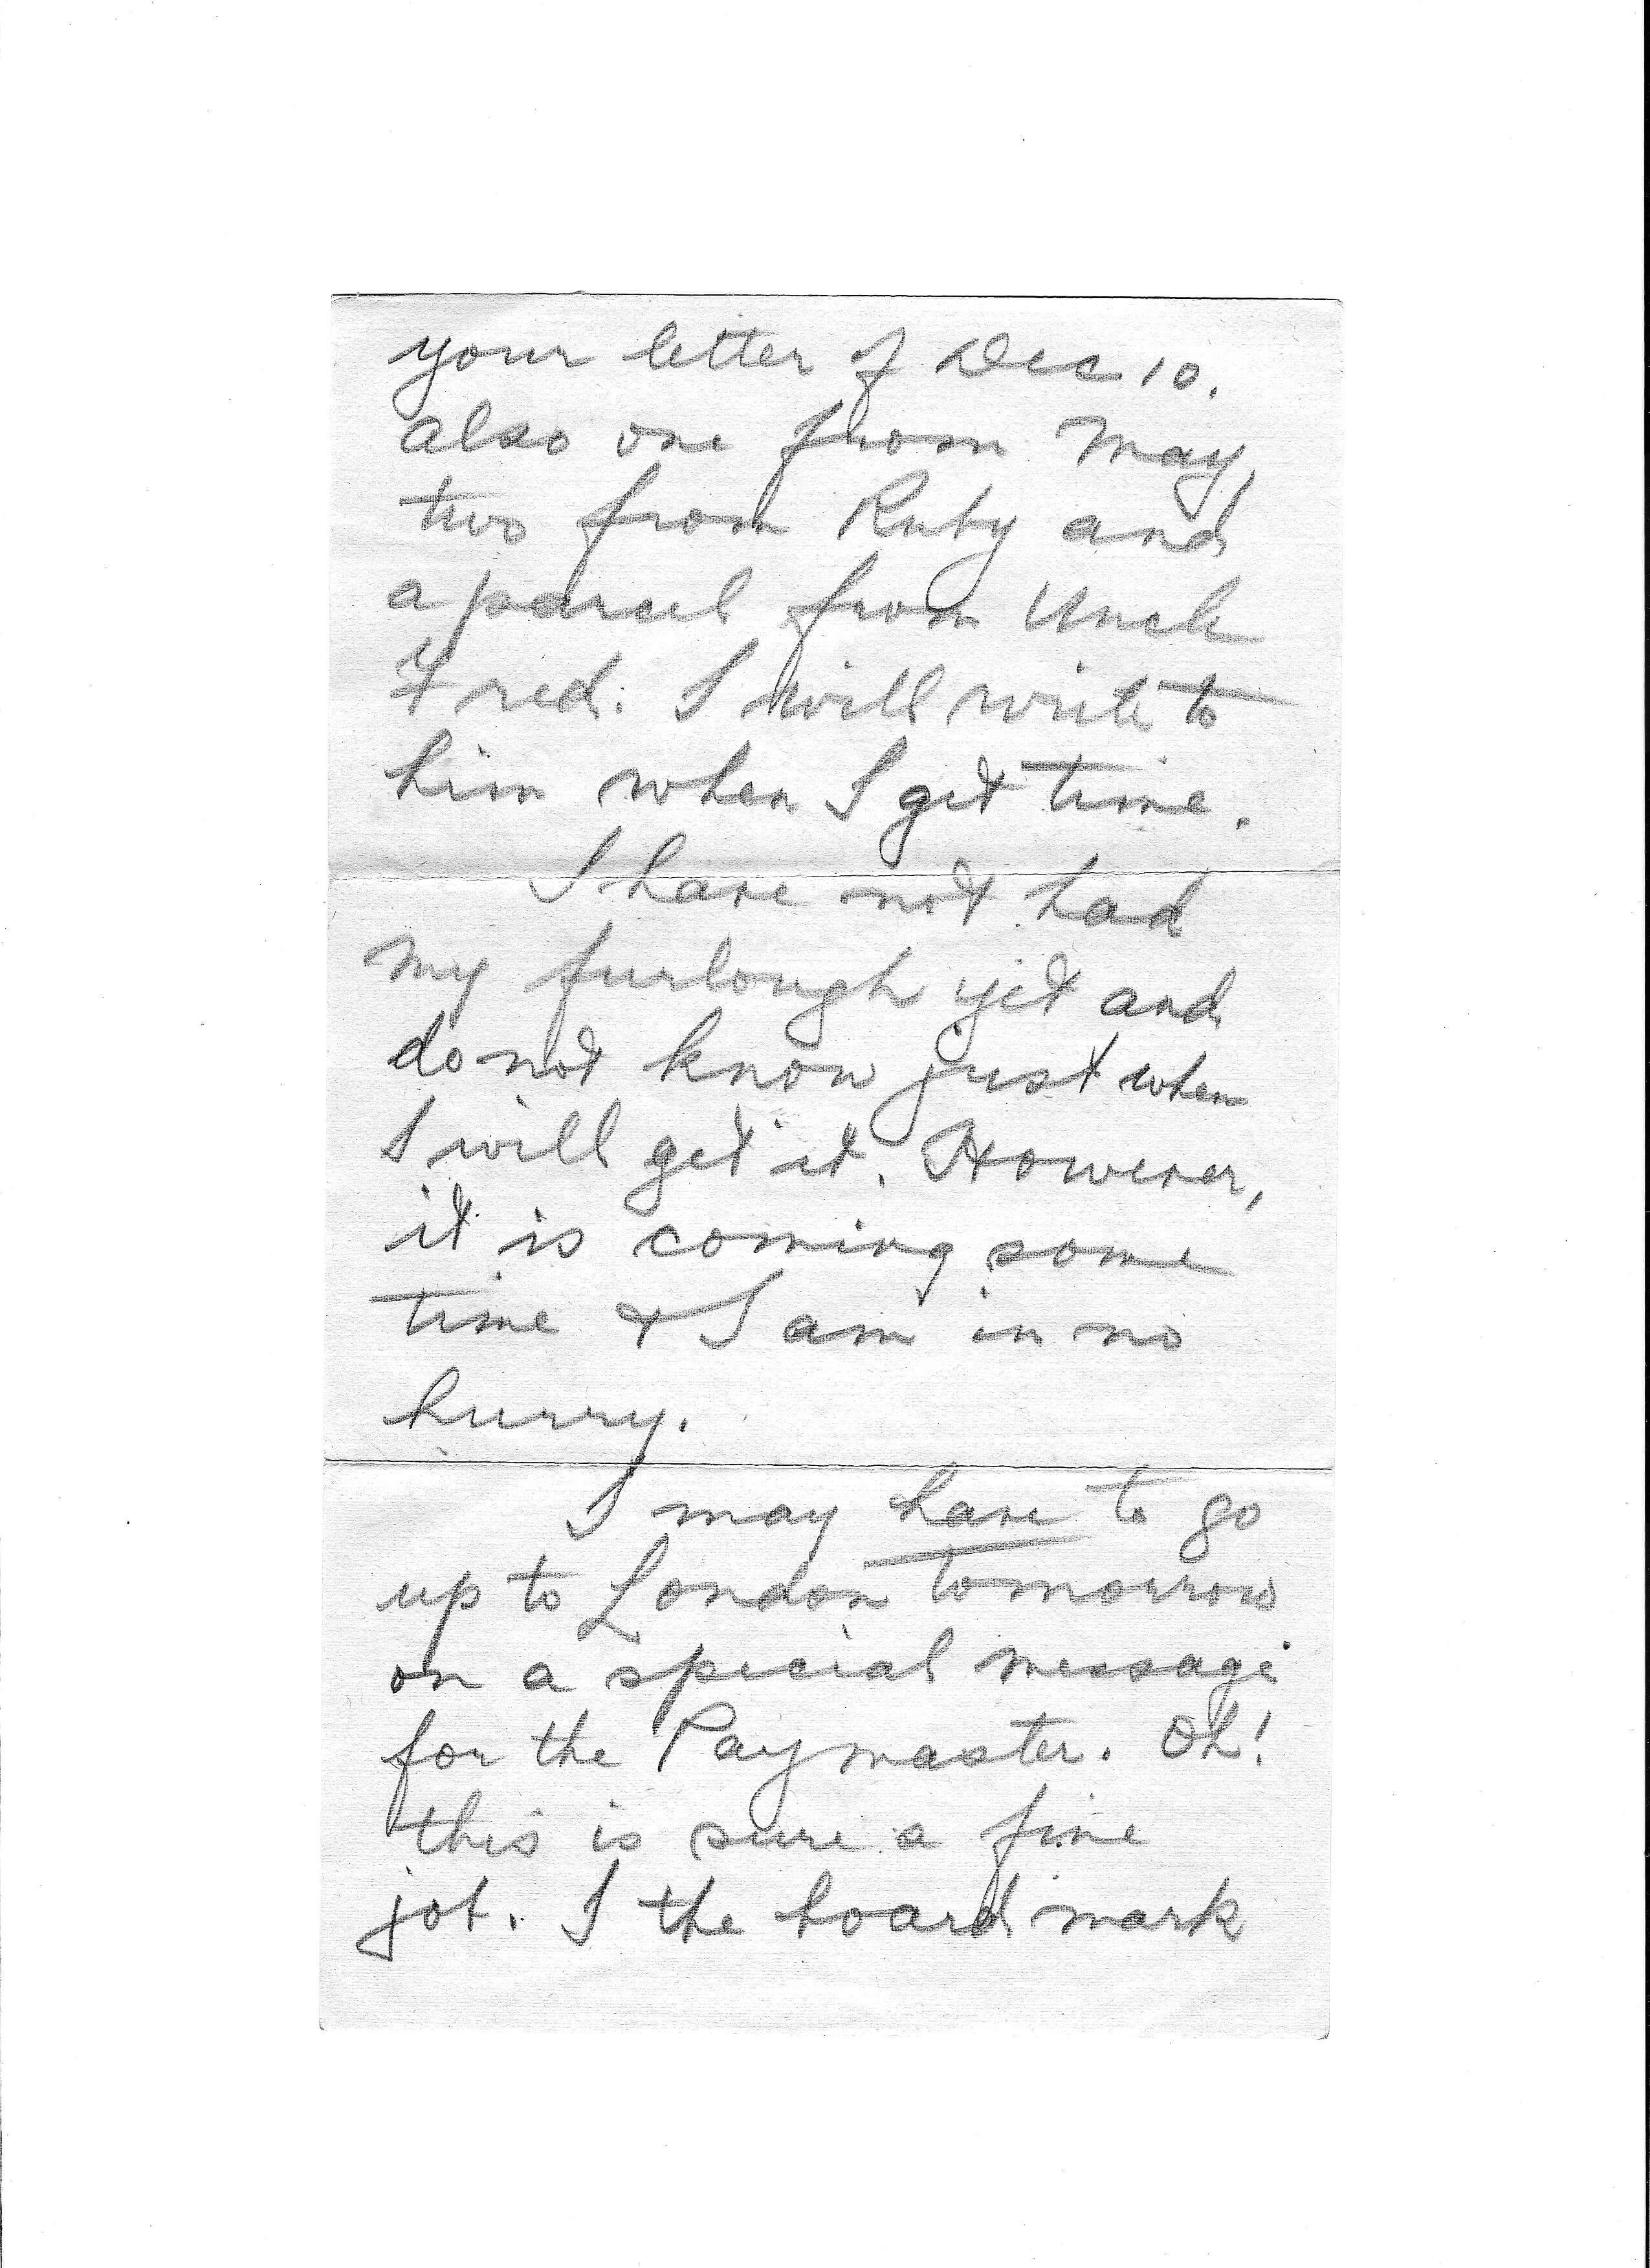 your letter of Dec 10.
also one from May,
two from Ruby and
a parcel from Uncle
Fred. I will write to
him when I get time.
I have not had
my furlough yet and
do not know just when
I will get it. However,
it is coming some
time & I am in no
hurry.
I may have to go
up to London tomorrow
on a special message
for the Paymaster. Oh!
this is sure a fine
job. I the board mark